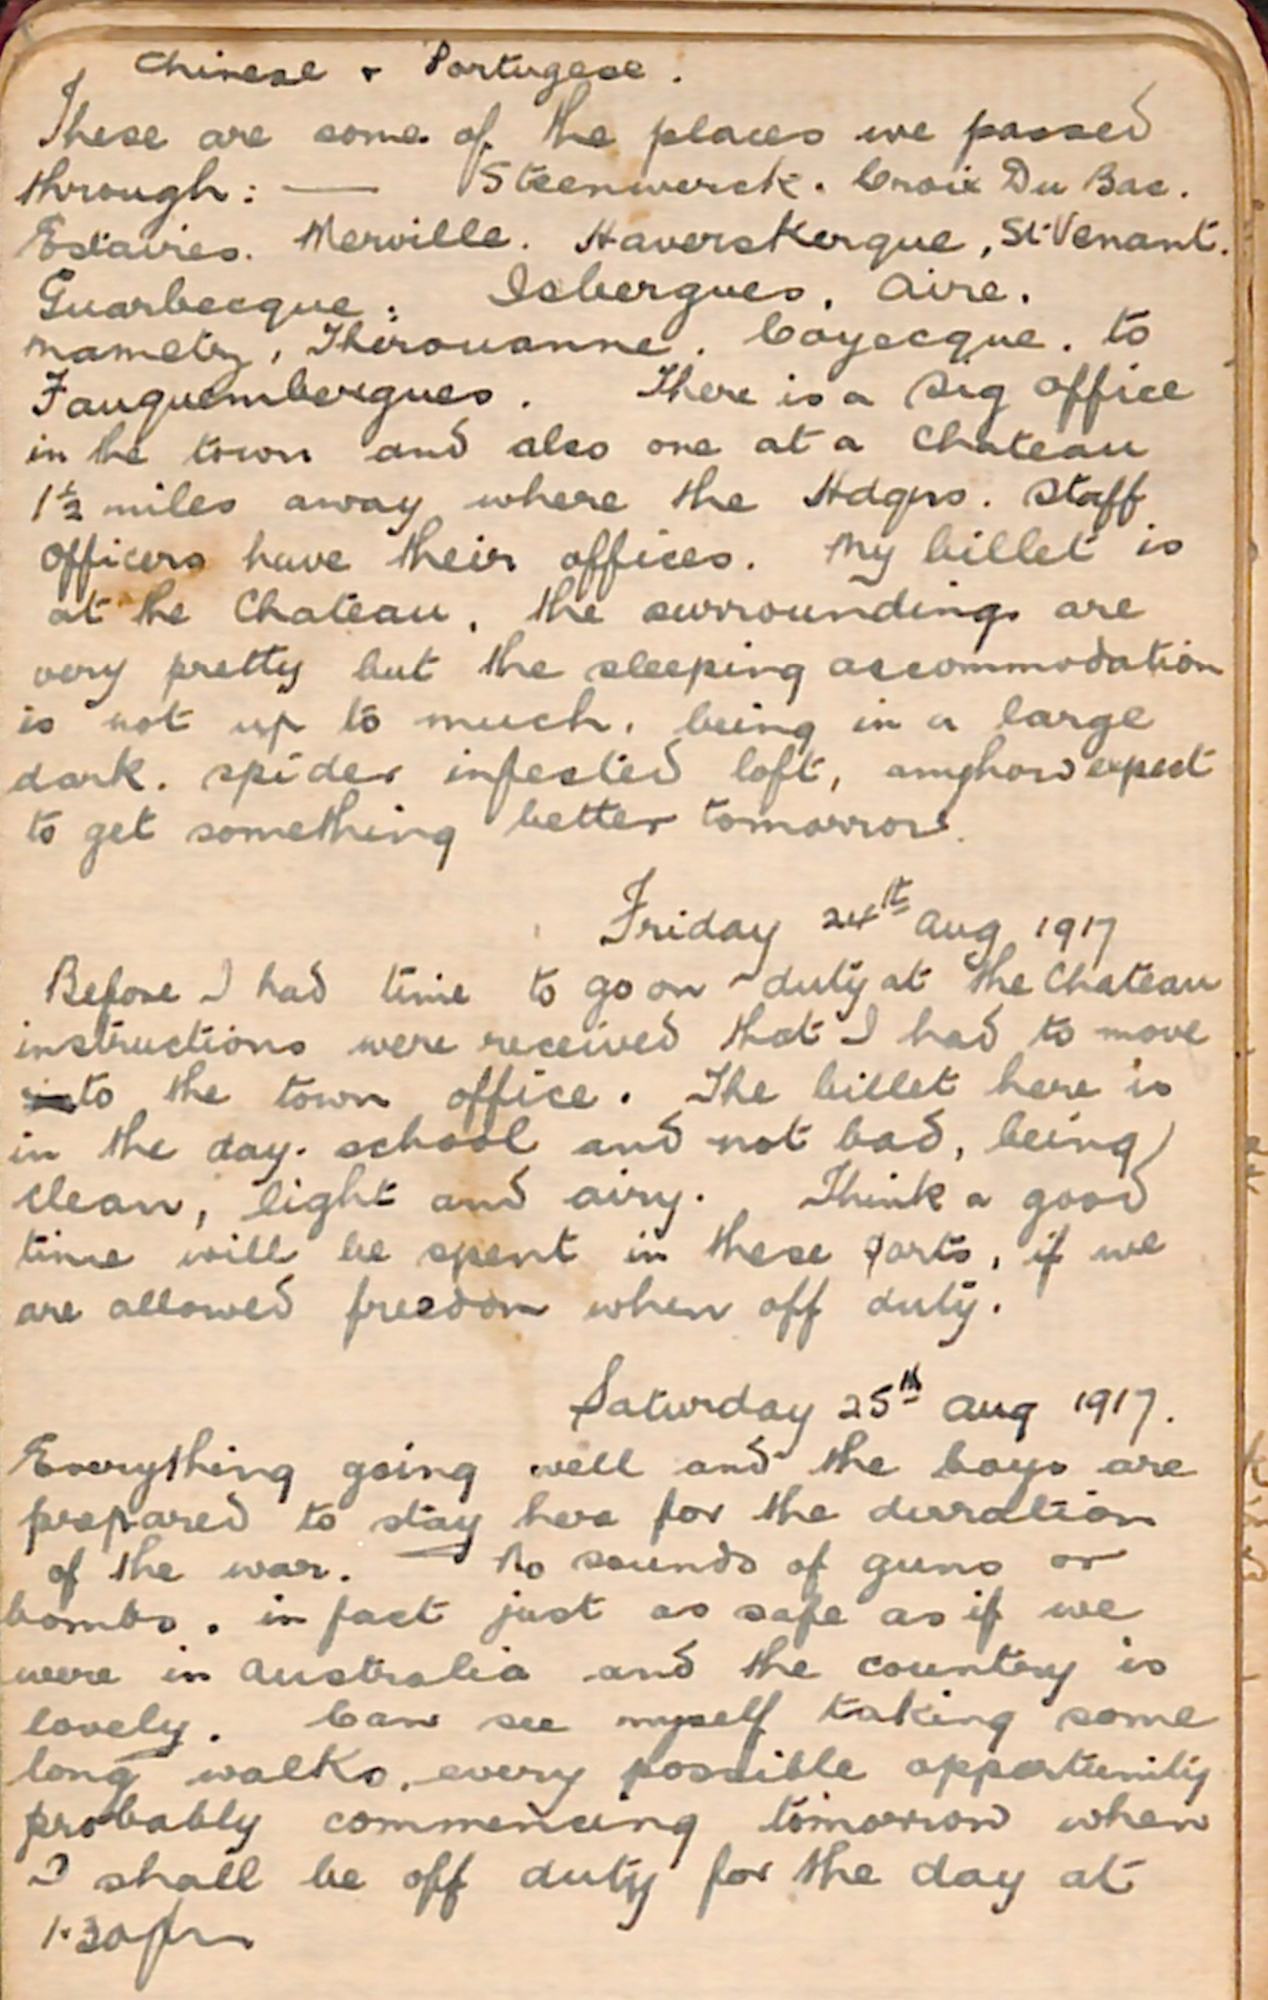 Chinese & Portugese.
These are some of the places we passed
through: — Steenwerck. Croix Du Bac.
Estaires. Merville. Haverskerque, St. Venant.
Guarbecque. Isbergues. Aire.
Mametz, Thérouanne. Coyecque. to
Fauquembergues. There is a Sig Office
in the town and also one at a Chateau
1½ miles away where the Hdqrs. Staff
Officers have their offices. My billet is
at the Chateau, the surroundings are
very pretty but the sleeping accommodation
is not up to much, being in a large
dark. spider infested loft, anyhow expect
to get something better tomorrow.
Friday 24th Aug 1917
Before I had time to go on duty at the Chateau
instructions were received that I had to move
to the town office. The billet here is
in the day. school and not bad, being
clean, light and airy. Think a good
time will be spent in these parts, if we
are allowed freedom when off duty.
Saturday 25th Aug 1917.
Everything going well and the boys are
prepared to stay here for the durration
of the war. No sounds of guns or
bombs. in fact just as safe as if we
were in Australia and the country is
lovely. Can see myself taking some
long walks, every possible opportunity
probably commencing tomorrow when
I shall be off duty for the day at
1.30pm